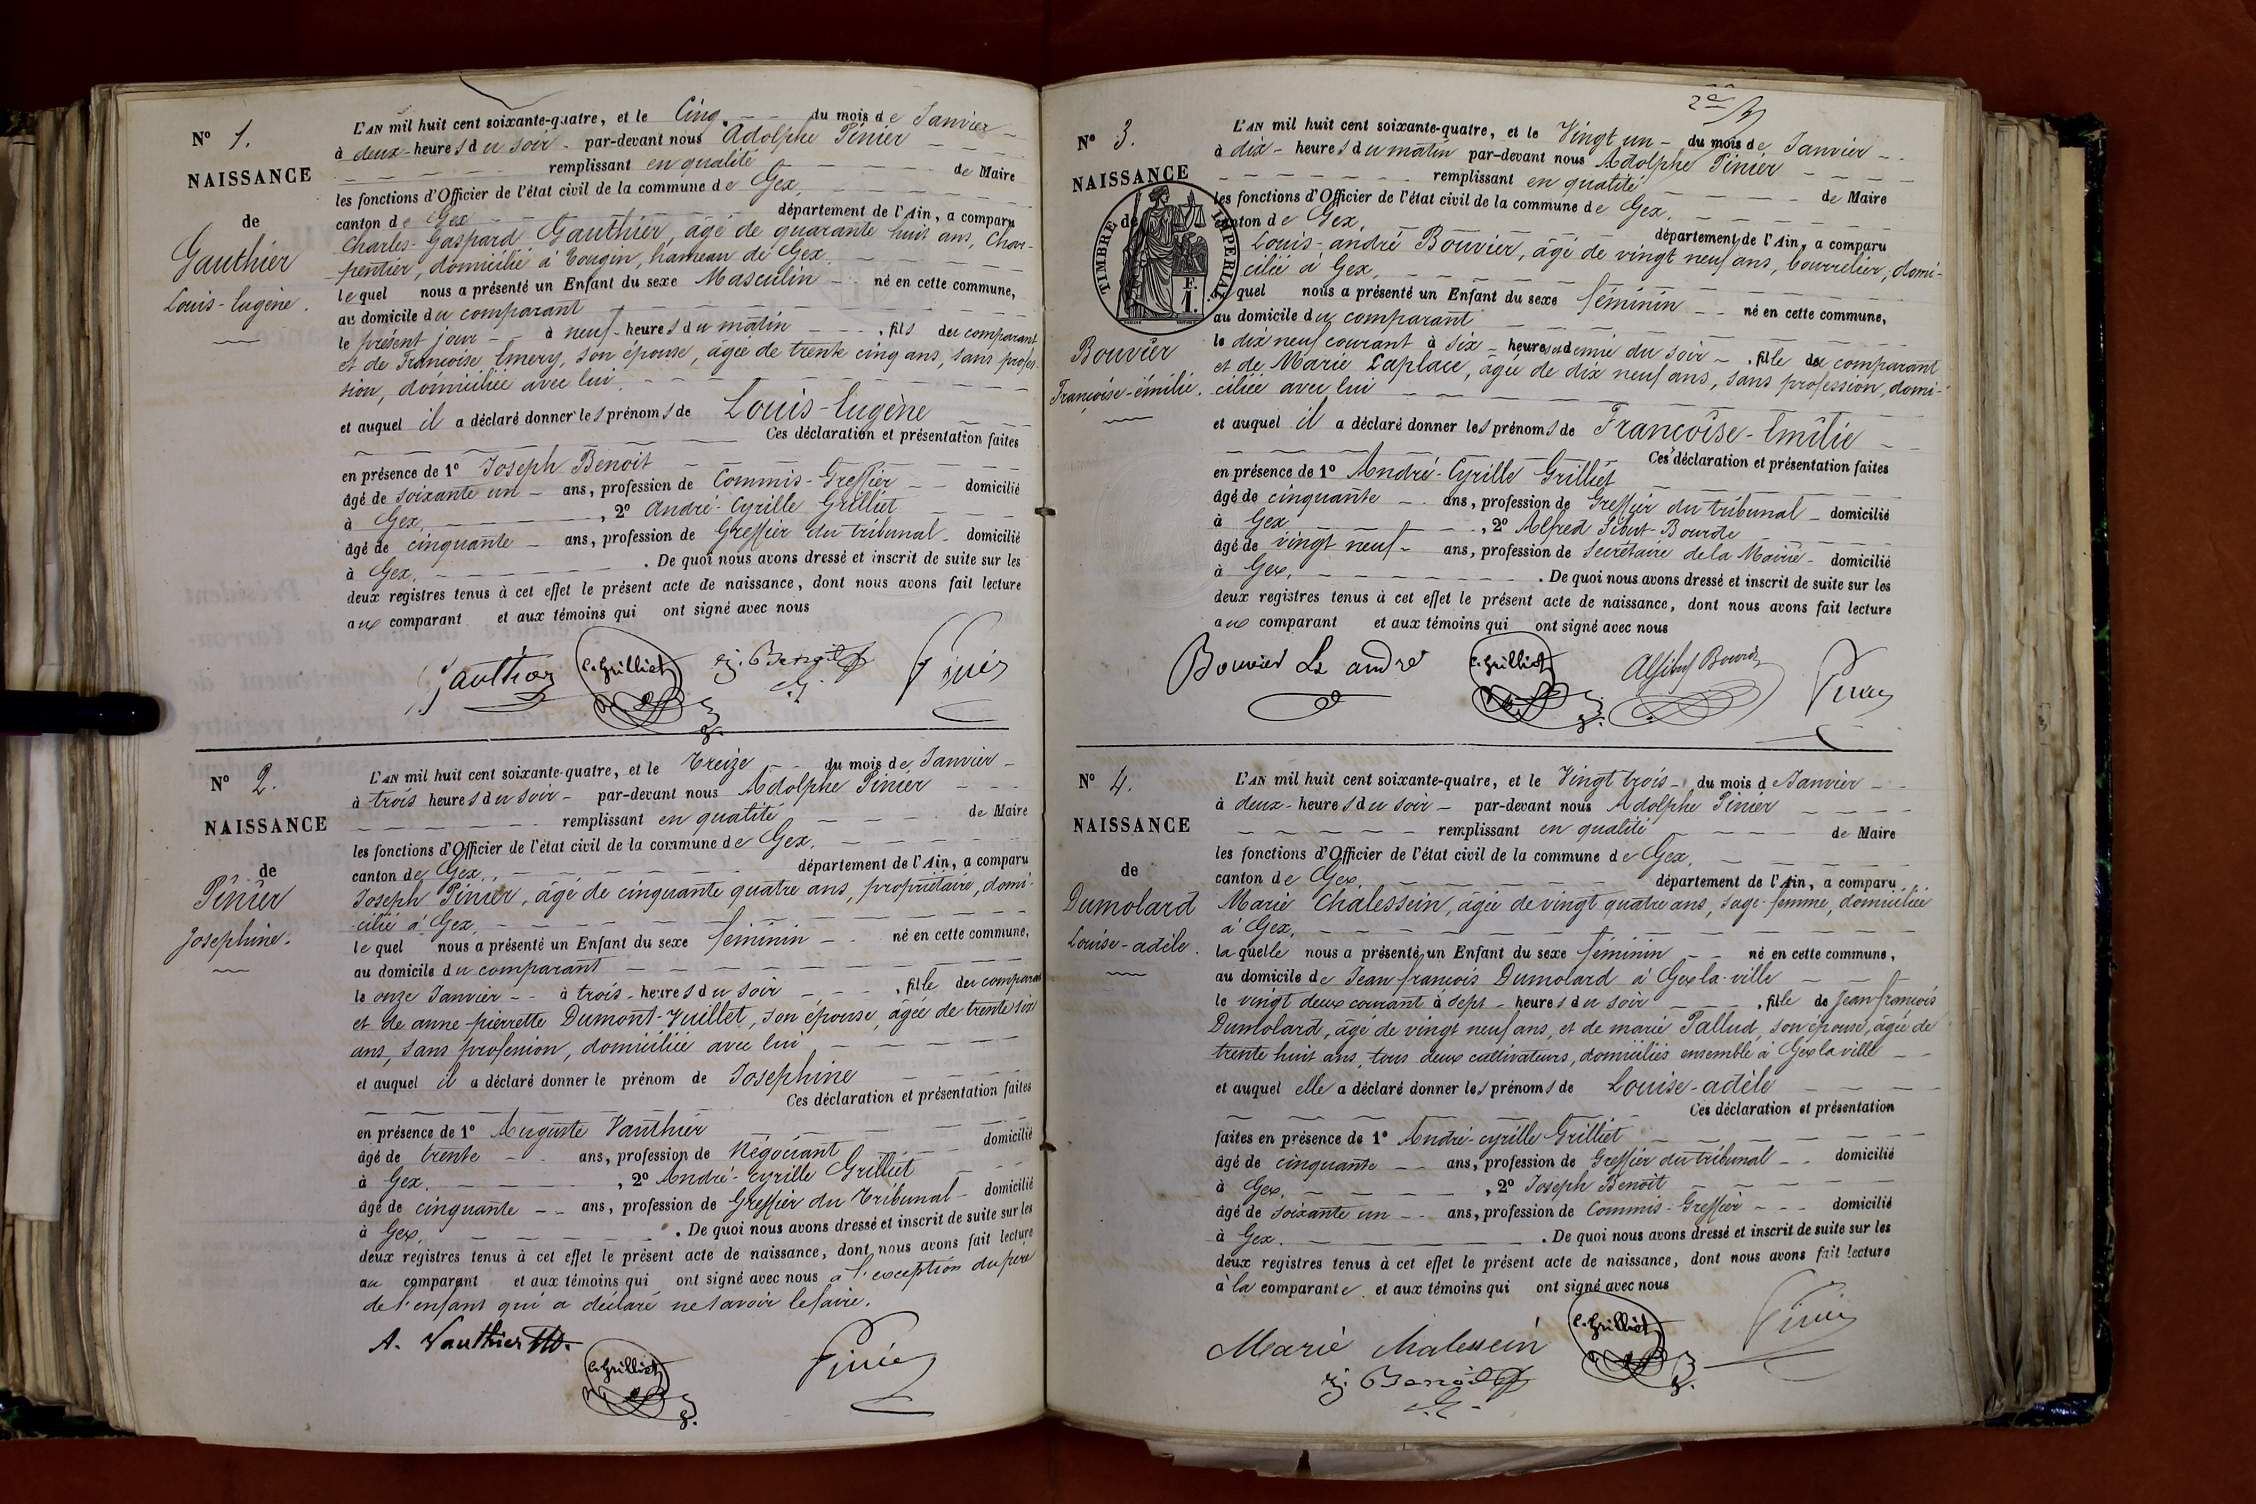 N° 1.
NAISSANCE
de
Gauthier
Louis-Eugène.
L'AN mil huit cent soixante-quatre, et le Cinq du mois de Janvier
à deux heures du soir par-devant nous Adolphe Pinier
remplissant en qualité de Maire
les fonctions d'Officier de l'état civil de la commune de Gex,
canton de Gex département de l'Ain, a comparu
Charles-Gaspard Gauthier, âgé de quarante huit ans, Char-
pentier, domicilié à Tougin, hameau de Gex.
lequel nous a présenté un Enfant du sexe Masculin né en cette commune,
au domicile du comparant
le présent jour à neuf heures du matin, fils du comparant
et de Françoise Emery, son épouse, âgée de trente cinq ans, sans profes-
sion, domiciliée avec lui.
et auquel il a déclaré donner les prénoms de Louis-Eugène
Ces déclaration et présentation faites
en présence de 1° Joseph Benoit
âgé de soixante un ans, profession de Commis-Greffier domicilié
à Gex, 2° André-Cyrille Grilliet
âgé de cinquante ans, profession de Greffier du tribunal domicilié
à Gex. De quoi nous avons dressé et inscrit de suite sur les
deux registres tenus à cet effet le présent acte de naissance, dont nous avons fait lecture
aux comparant et aux témoins qui ont signé avec nous
Gauthier C. Grilliet j. Benoit Pinier
N° 2.
NAISSANCE
de
Pinier
Josephine.
L'AN mil huit cent soixante-quatre, et le Treize du mois de Janvier
à trois heures du soir par-devant nous Adolphe Pinier
remplissant en qualité de Maire
les fonctions d'Officier de l'état civil de la commune de Gex,
canton de Gex, département de l'Ain, a comparu
Joseph Pinier, âgé de cinquante quatre ans, propriétaire, domi-
cilié à Gex,
lequel nous a présenté un Enfant du sexe féminin né en cette commune,
au domicile du comparant
le onze Janvier à trois heures du soir, fille du comparant
et de anne-pierrette Dumont-Vuillet, son épouse, âgée de trente six
ans, sans profession, domiciliée avec lui
et auquel il a déclaré donner le prénom de Josephine
Ces déclaration et présentation faites
en présence de 1° Auguste Vauthier
âgé de trente ans, profession de Négociant domicilié
à Gex, 2° André-Cyrille Grilliet
âgé de cinquante ans, profession de Greffier du Tribunal domicilié
à Gex. De quoi nous avons dressé et inscrit de suite sur les
deux registres tenus à cet effet le présent acte de naissance, dont nous avons fait lecture
au comparant et aux témoins qui ont signé avec nous à l'exception du père
de l'enfant qui a déclaré ne savoir le faire.
A. Vauthier
C. Grilliet Pinier
N° 3.
NAISSANCE
de
TIMBRE IMPERIAL
F. 1.
Bouvier
Françoise-émilie.
L'AN mil huit cent soixante-quatre, et le Vingt un du mois de Janvier
à dix heures du matin par-devant nous Adolphe Pinier
remplissant en qualité de Maire
les fonctions d'Officier de l'état civil de la commune de Gex,
canton de Gex, département de l'Ain, a comparu
Louis-andré Bouvier, âgé de vingt neuf ans, bourrelier, domi-
cilié à Gex,
lequel nous a présenté un Enfant du sexe féminin né en cette commune,
au domicile du comparant
le dix neuf courant à six heures et demie du soir, fille du comparant
et de Marie Laplace, âgée de dix neuf ans, sans profession, domi-
ciliée avec lui
et auquel il a déclaré donner les prénoms de Françoise-Emilie
Ces déclaration et présentation faites
en présence de 1° André-Cyrille Grilliet
âgé de cinquante ans, profession de Greffier du tribunal domicilié
à Gex, 2° Alfred Bourde
âgé de vingt neuf ans, profession de Secrétaire de la Mairie domicilié
à Gex. De quoi nous avons dressé et inscrit de suite sur les
deux registres tenus à cet effet le présent acte de naissance, dont nous avons fait lecture
aux comparant et aux témoins qui ont signé avec nous
Bouvier Ls andré C. Grilliet Pinier
N° 4.
NAISSANCE
de
Dumolard
Louise-adèle.
L'AN mil huit cent soixante-quatre, et le Vingt trois du mois de Janvier
à deux heures du soir par-devant nous Adolphe Pinier
remplissant en qualité de Maire
les fonctions d'Officier de l'état civil de la commune de Gex,
canton de Gex département de l'Ain, a comparu
Marie Chalessein, âgée de vingt quatre ans, sage-femme, domiciliée
à Gex,
laquelle nous a présenté un Enfant du sexe féminin né en cette commune,
au domicile de Jean françois Dumolard à Gex la ville
le vingt deux courant à sept heures du soir, fille de Jean françois
Dumolard, âgé de vingt neuf ans, et de marie Pallud, son épouse, âgée de
trente huit ans, tous deux cultivateurs, domiciliés ensemble à Gex la ville
et auquel elle a déclaré donner les prénoms de Louise-adèle
Ces déclaration et présentation
faites en présence de 1° André-cyrille Grilliet
âgé de cinquante ans, profession de Greffier du tribunal domicilié
à Gex, 2° Joseph Benoit
âgé de soixante un ans, profession de Commis-Greffier domicilié
à Gex. De quoi nous avons dressé et inscrit de suite sur les
deux registres tenus à cet effet le présent acte de naissance, dont nous avons fait lecture
à la comparante et aux témoins qui ont signé avec nous
Marie Chalessein C. Grilliet Pinier
j. Benoit